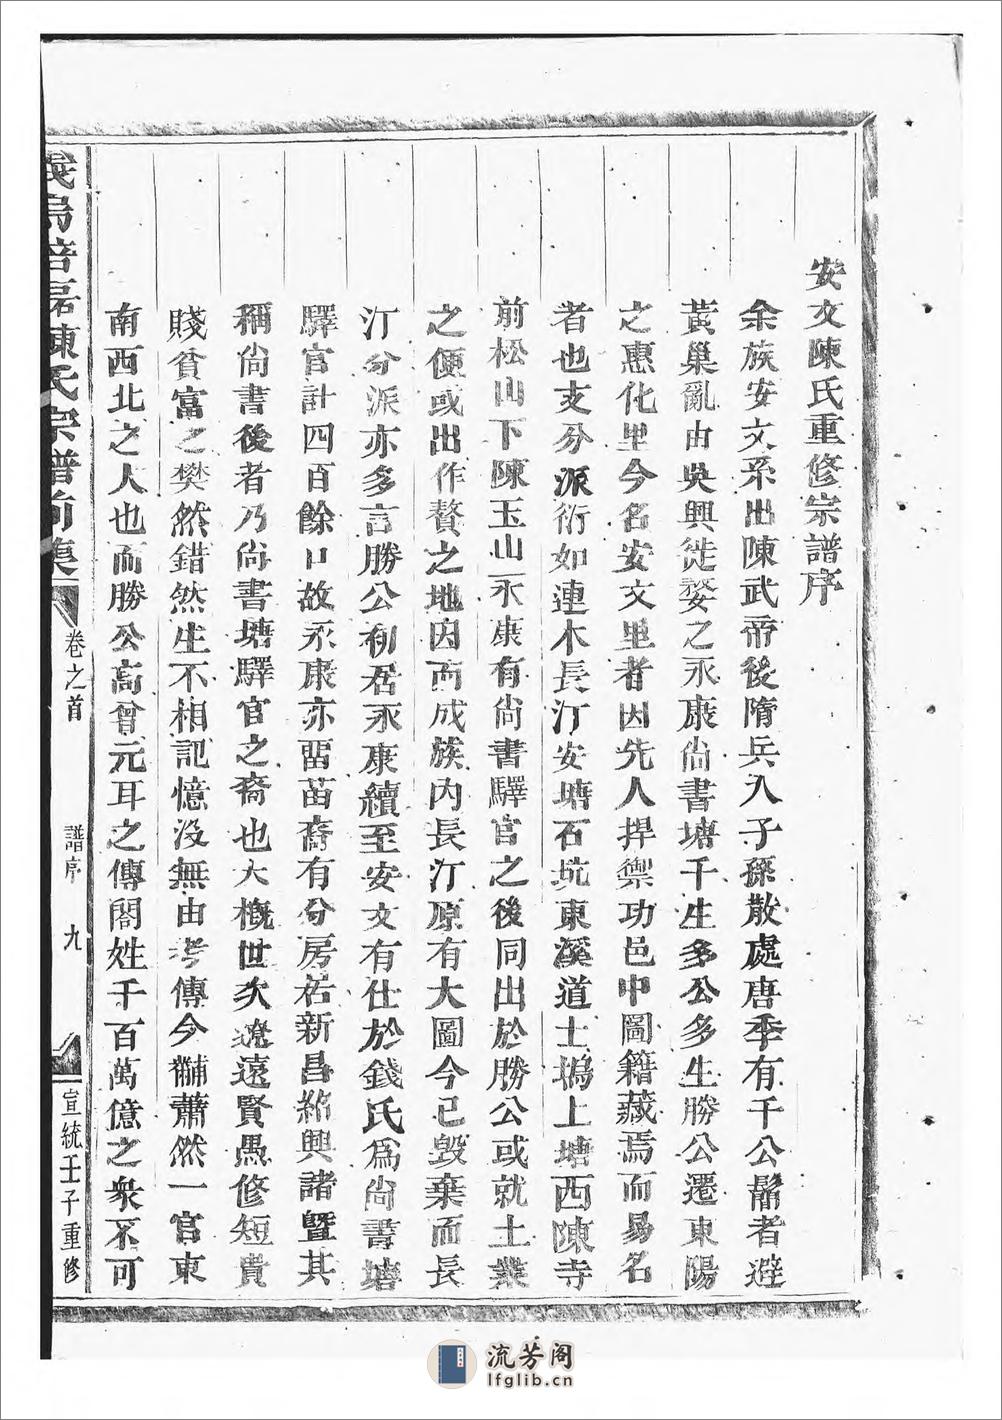 安文陳氏重修宗譜序
余族安文系出陳武帝後隋兵入子孫散處唐季有千公鬅者避
黃巢亂由吳興徙婺之永康尚書塘千生多公多生勝公遷東陽
之惠化里今名安文里者因先人捍禦功邑中圖籍藏焉而易名
者也支分派衍如連木長汀安塘石坑東溪道士塢上塘西陳寺
前松山下陳玉山永康有尚書驛官之後同出於勝公或就土業
之便或出作贅之地因而成族內長汀原有大圖今已毀棄而長
汀分派亦多言勝公初居永康續至安文有仕於錢氏為尚書塘
驛官計四百餘口故永康亦畱苗裔有分房居新昌紹興諸暨其
稱尚書後者乃尚書塘驛官之裔也大槪世次遼遠賢愚修短貴
賤貧富之樊然錯然生不相記憶沒無由考傳今黼蕭然一官東
南西北之人也而勝公高曾元耳之傳閤姓千百萬億之衆不可
義烏倍磊陳氏宗譜前集
卷之首
譜序
九
宣統壬子重修
流芳阁
lfglib.cn